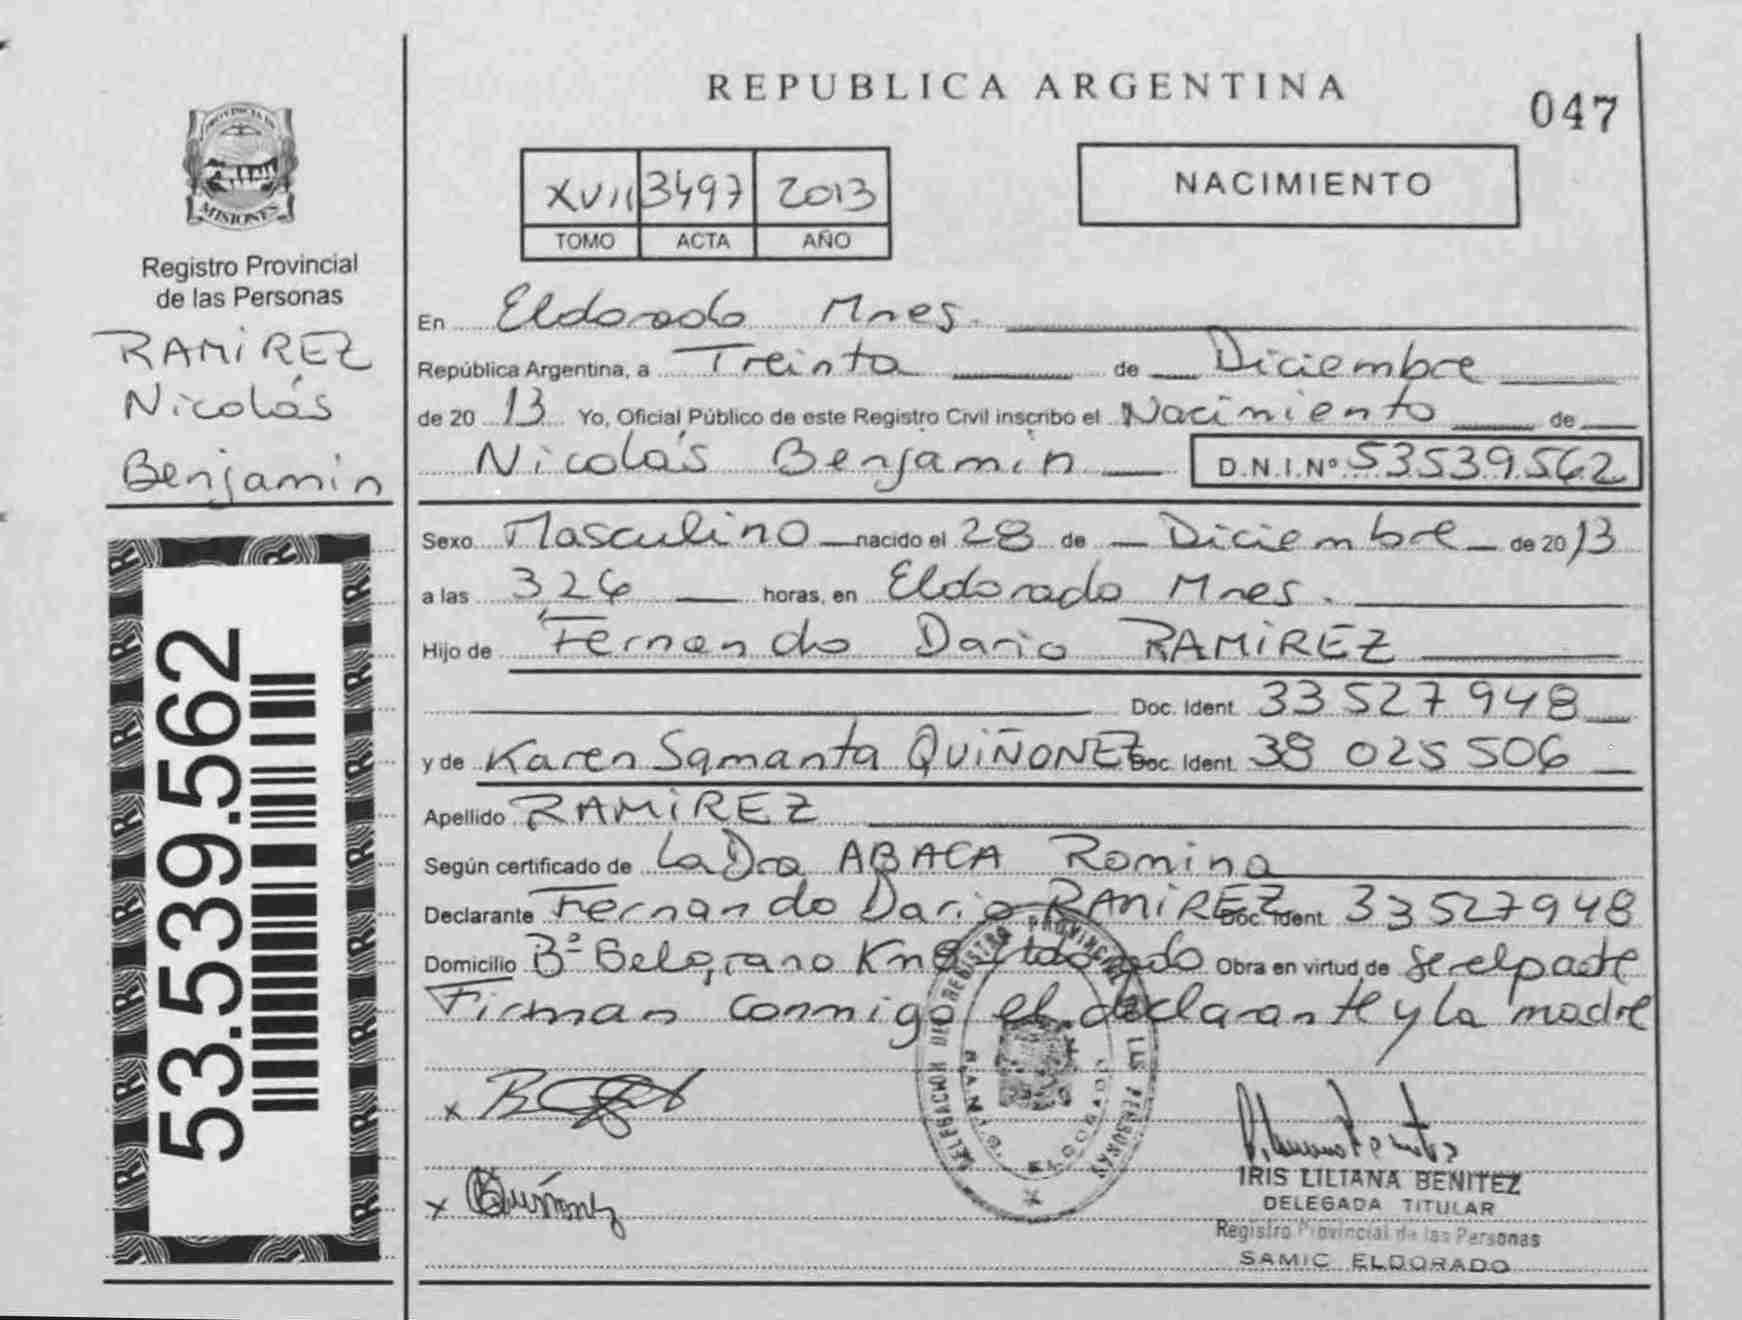 PROVINCIA DE
MISIONES
Registro Provincial
de las Personas
RAMIREZ
Nicolás
Benjamin
53.539.562
REPUBLICA ARGENTINA
047
XVII 3497 2013
TOMO ACTA AÑO
NACIMIENTO
En Eldorado Mnes.
República Argentina, a Treinta de Diciembre
de 20 13 Yo, Oficial Público de este Registro Civil inscribo el Nacimiento de
Nicolás Benjamin D.N.I.Nº 53539562
Sexo Masculino nacido el 28 de Diciembre de 20 13
a las 3,26 horas, en Eldorado Mnes.
Hijo de Fernando Dario RAMIREZ
Doc. Ident. 33 527 948
y de Karen Samanta QUIÑONEZ Doc. Ident. 38 025 506
Apellido RAMIREZ
Según certificado de La Dra ABACA Romina
Declarante Fernando Dario RAMIREZ Doc. Ident. 33527948
Domicilio Bº Belgrano Km 8 Eldorado Obra en virtud de ser el padre
Firman conmigo el declarante y la madre
x
x Quiñonez
DELEGACION DEL REGISTRO PROVINCIAL DE LAS PERSONAS
ELDORADO
IRIS LILIANA BENITEZ
DELEGADA TITULAR
Registro Provincial de las Personas
SAMIC ELDORADO